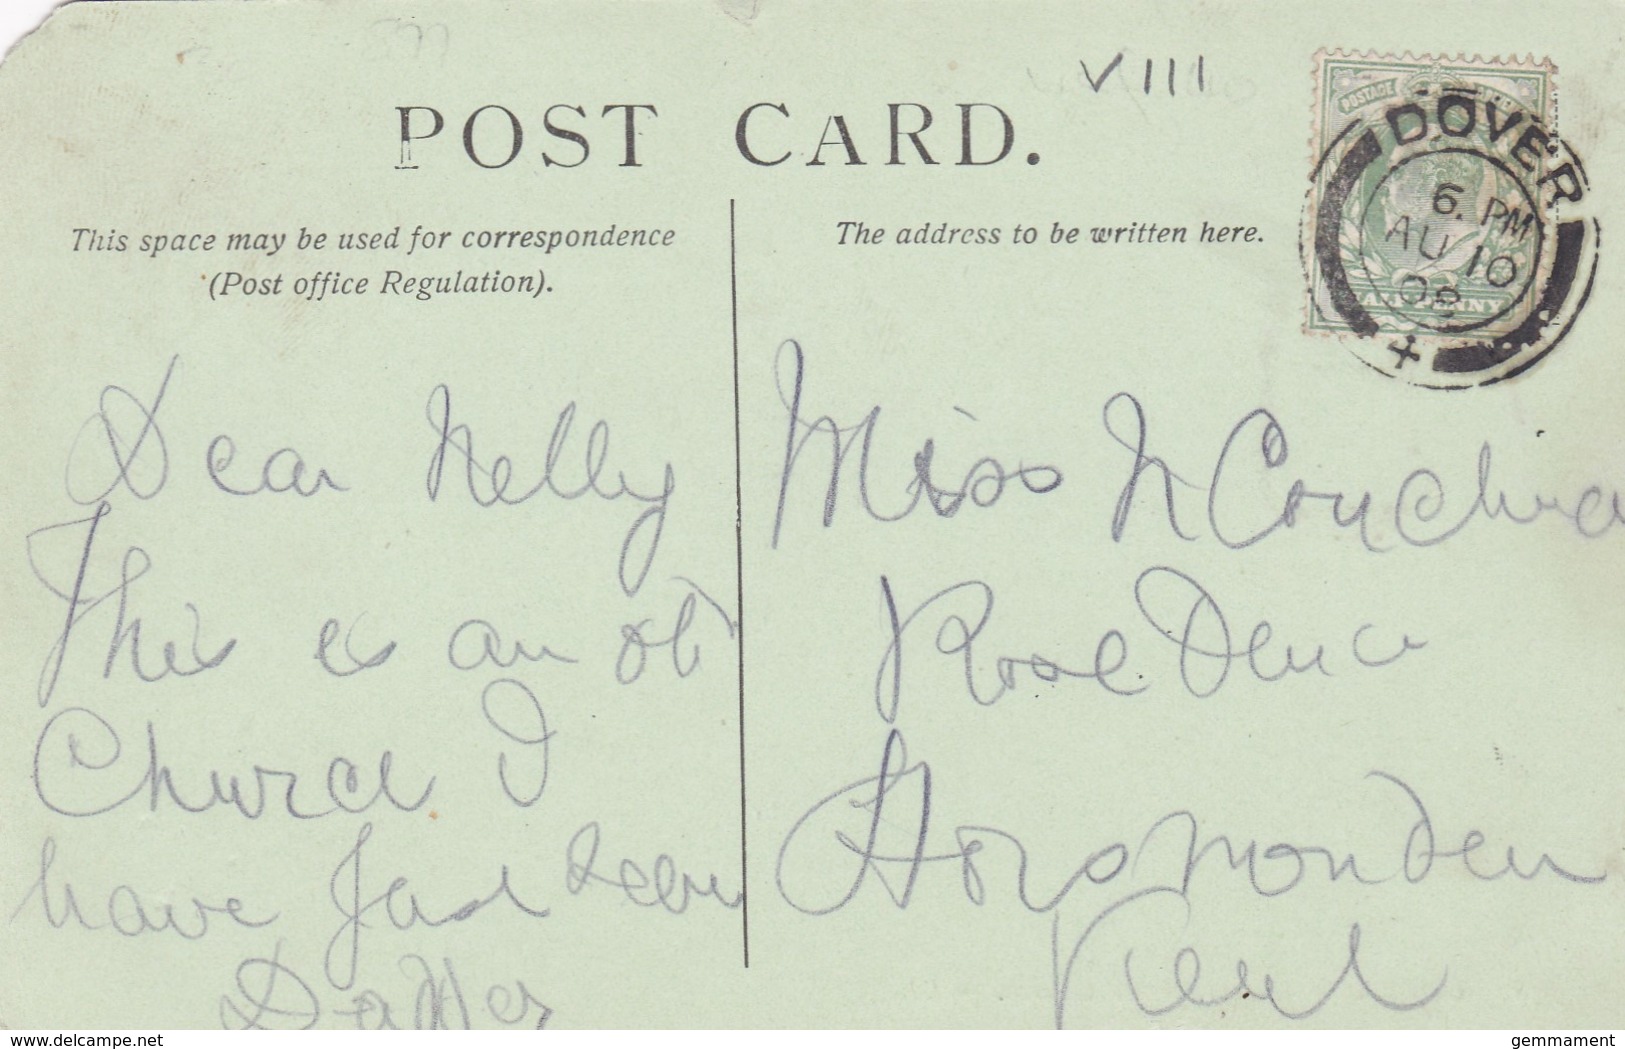 VIII
POST CARD.
This space may be used for correspondence
(Post office Regulation).
The address to be written here.
POSTAGE
DOVER
6. PM
AU 10
08
HALFPENNY
Dear Nelly
This is an old
Church I
have Just seen
Miss N
Rose Dene
Horsmonden
Kent
delcampe.net
gemmament